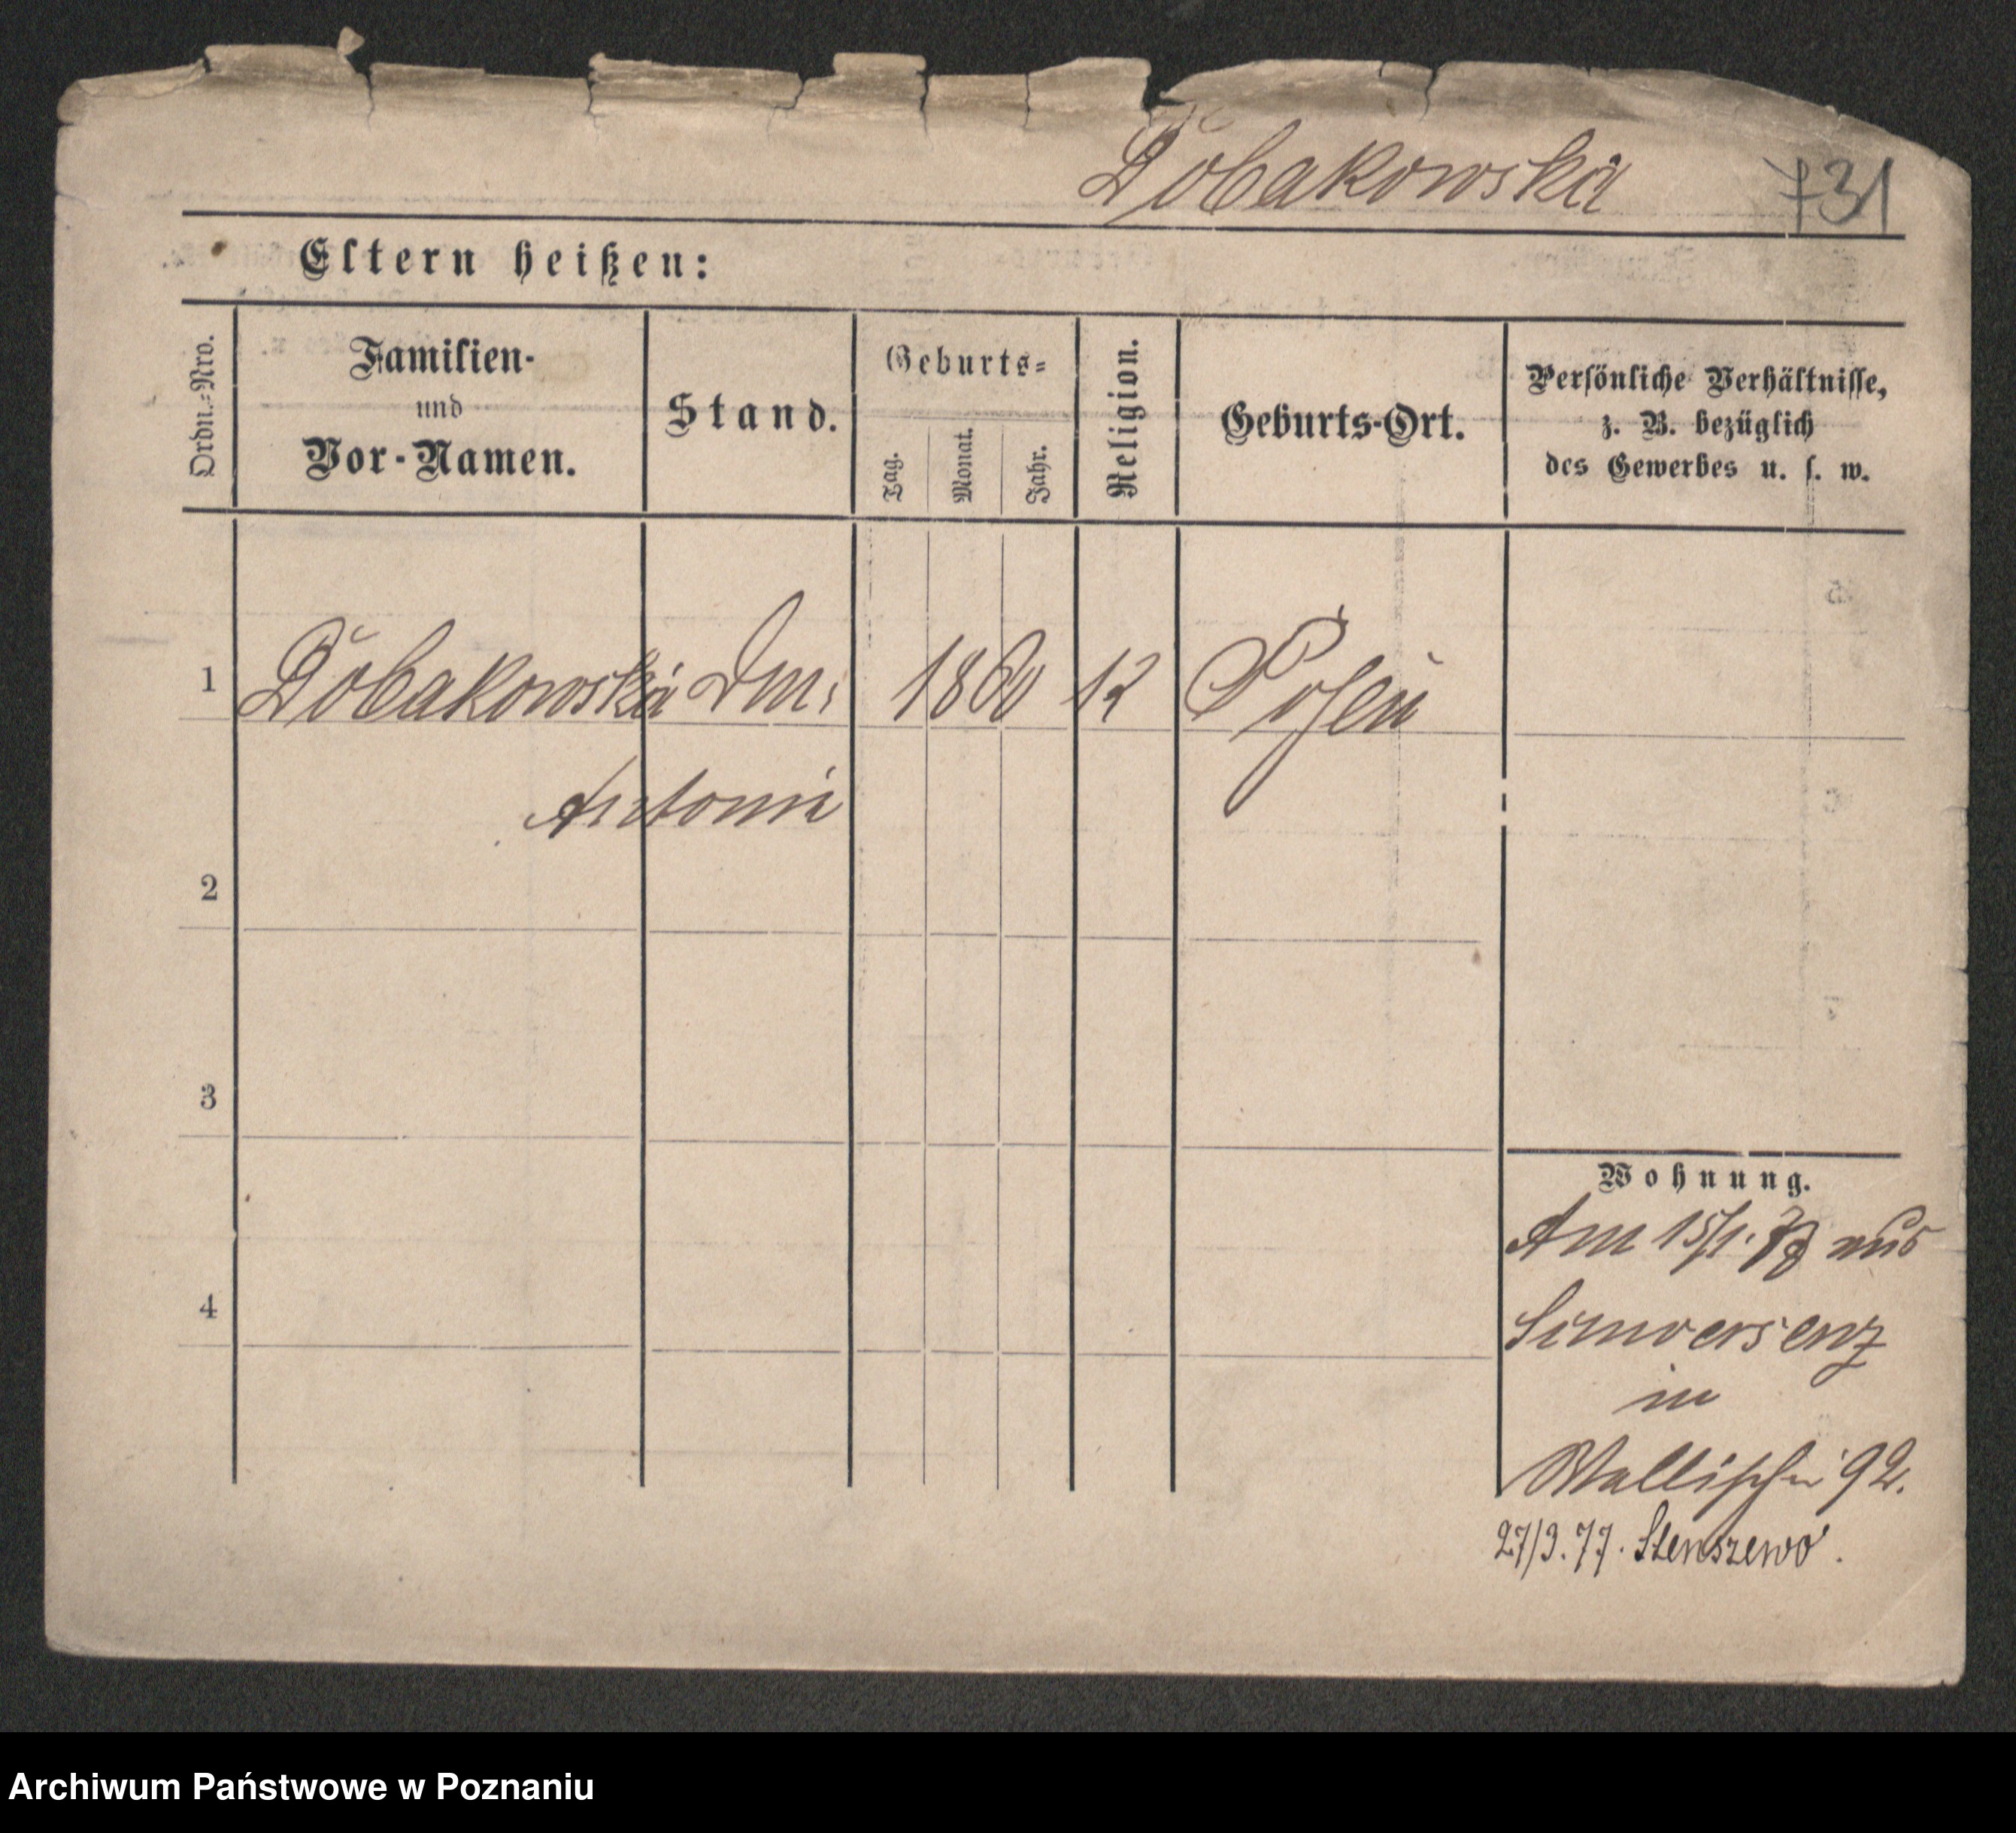 Dobakowska 731
Eltern heißen:
Ordn.-Nro.
Familien-
und
Vor-Namen.
Stand.
Geburts-
Tag.
Monat.
Jahr.
Religion.
Geburts-Ort.
Persönliche Verhältnisse,
z. B. bezüglich
des Gewerbes u. s. w.
1 Dobakowska 1860 k Posen
Antonie
2
3
4
Wohnung.
Am 15/1. 77 aus
Schwersenz
in
Wallischei 92.
27/3.77. Stenszewo.
Archiwum Państwowe w Poznaniu